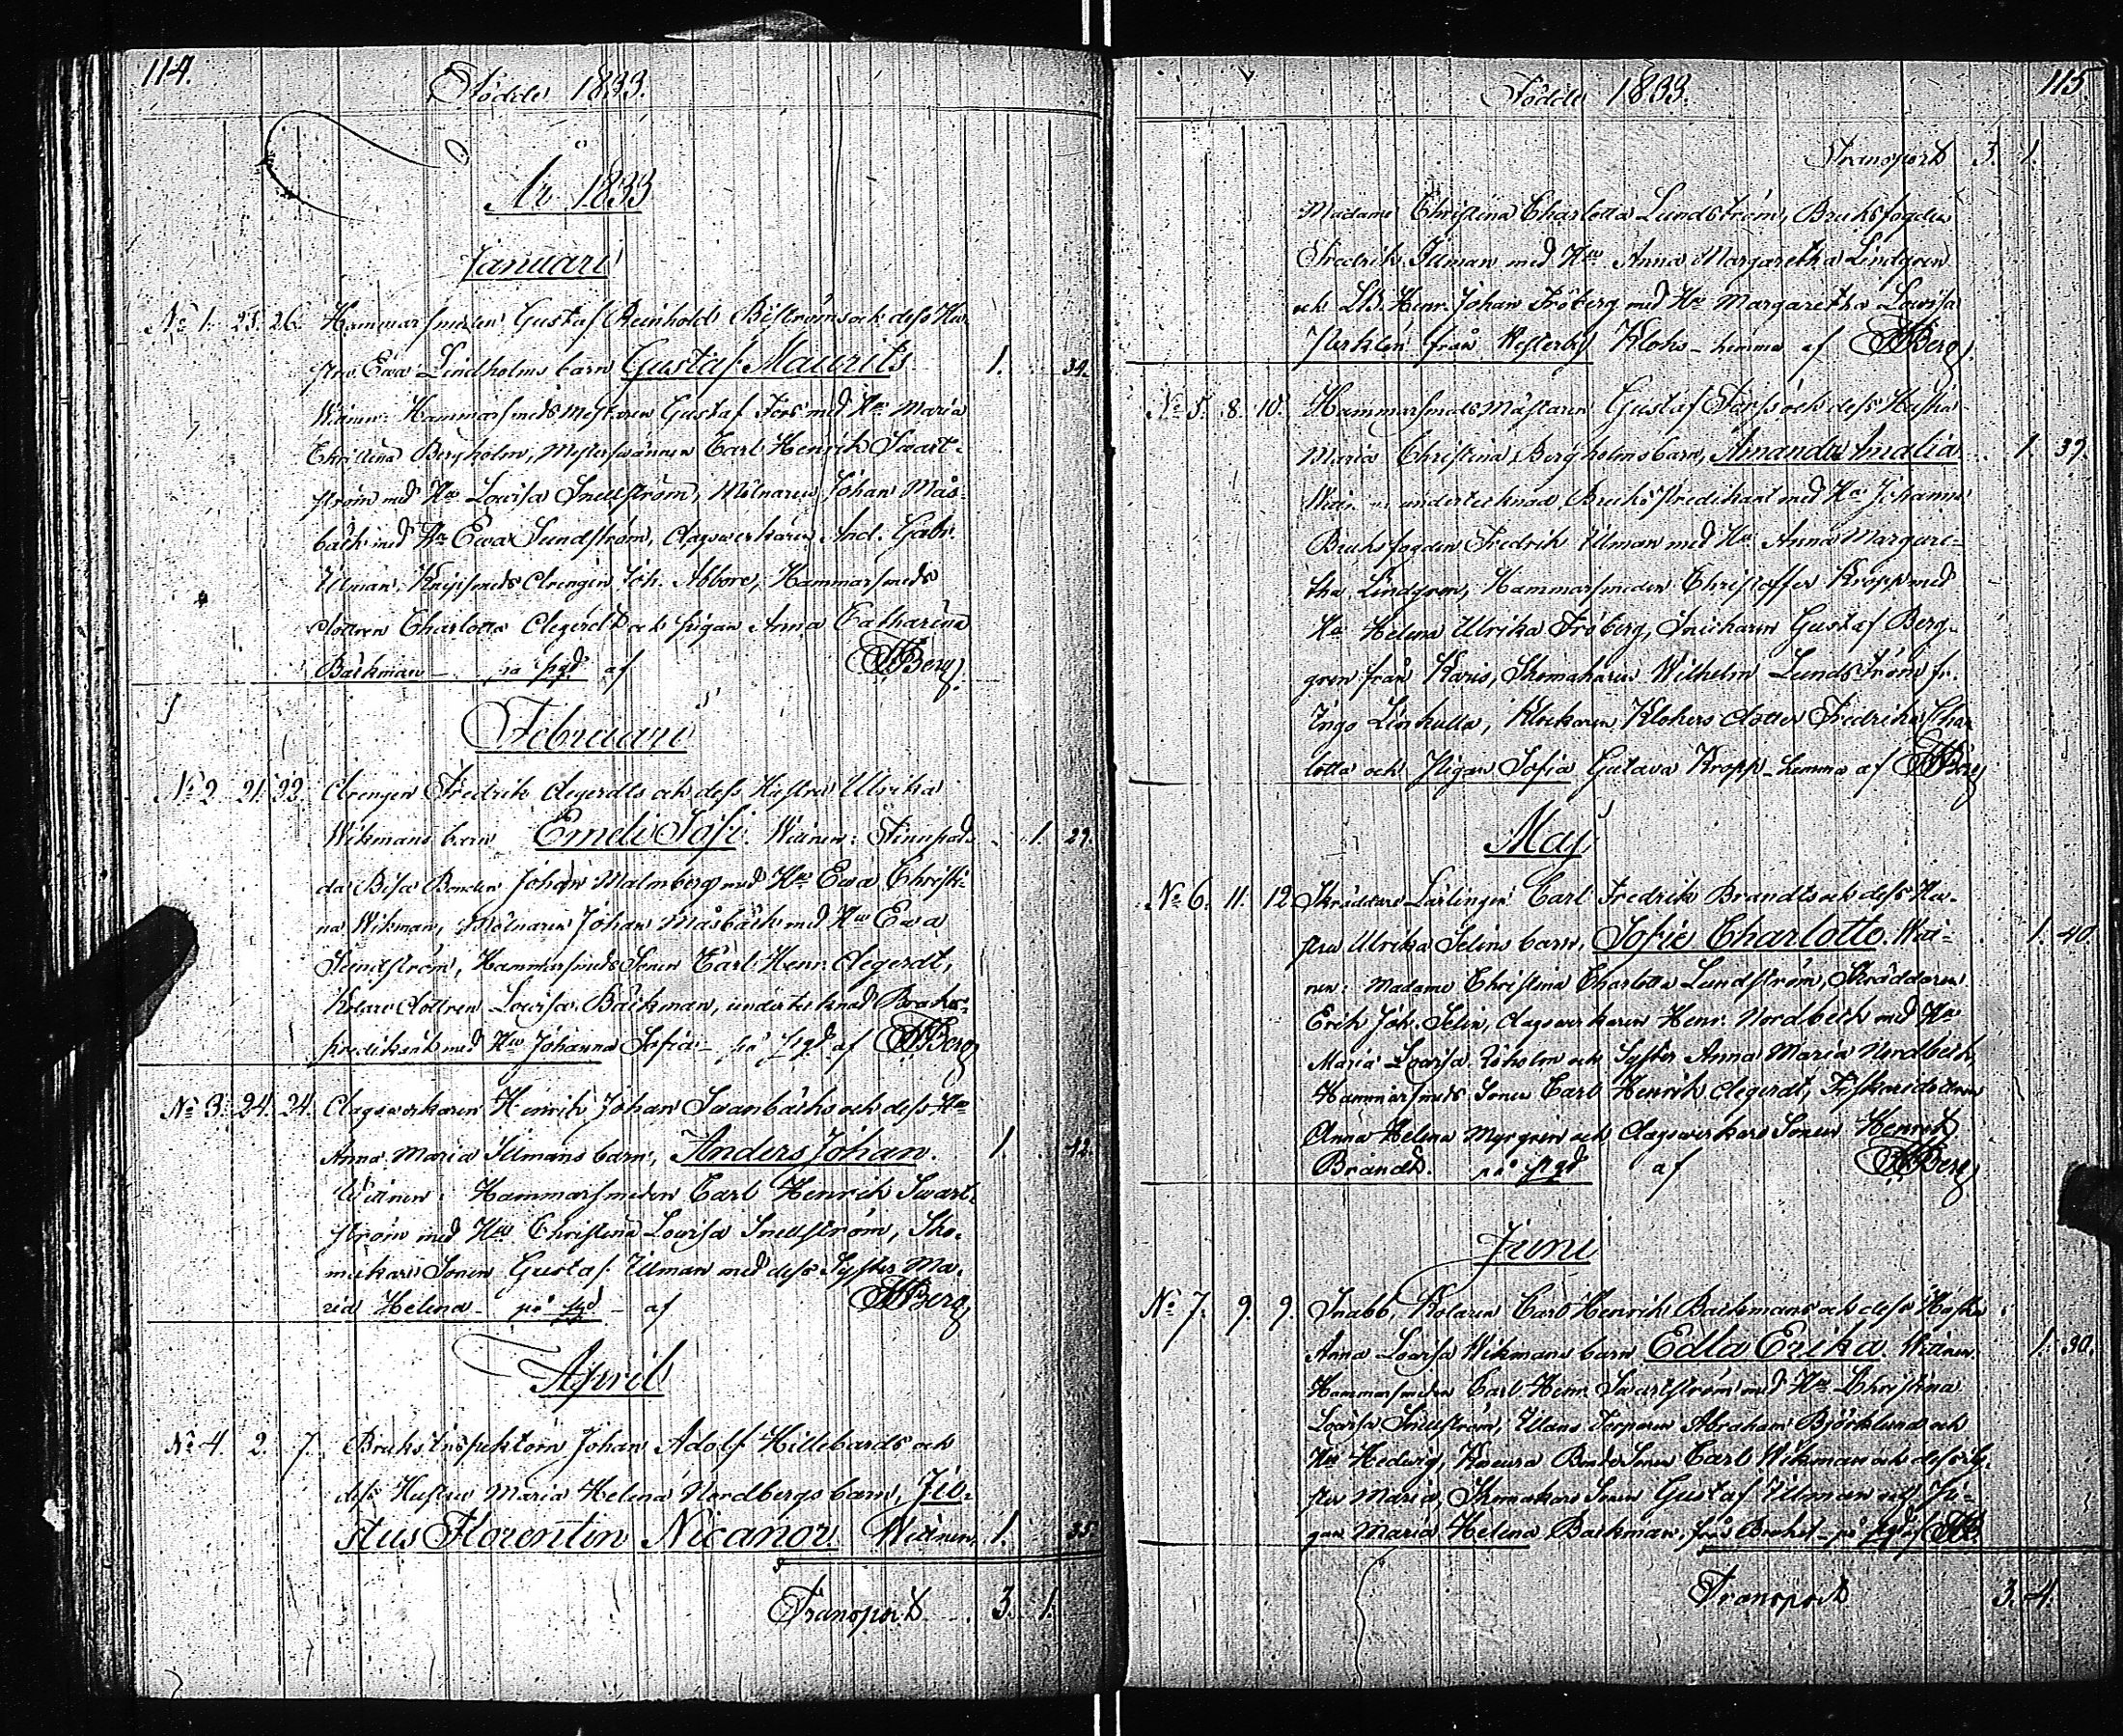 114.
Födde 1833.
År 1833
Januari
No 1. 25. 26. Hammarsmeden Gustaf Reinhold Biströms och dess Hu-
stru Ewa Lindholms barn Gustaf Maurits 1. 34.
Wittnen: Hammarsmedsmästaren Gustaf Fors med Hu Maria
Christina Bergholm, Mästersvännen Carl Henrik Swart-
ström med Hu Lovisa Snellström, Mölnaren Johan Mås-
bäck med Hu Ewa Sundström, Dagsverkaren And. Gabr.
Ulman, Knipsmeds Drengen Joh. Abbore, Hammarsmeds
dottren Charlotta Degerdt och pigan Anna Catharina
Bäckman – på af Berg.
Februari
No 2. 21. 23. Drengen Fredrik Degerdts och dess Hustru Ulrika
Wikmans barn Emeli Sofi. Wittnen: 1. 29.
da Bisa Bonden Johan Malmberg med Hu Ewa Christi-
na Wikman, Mölnaren Johan Måsbäck med Hu Ewa
Sundström, Hammarsmeds Sonen Carl Henr. Degerdt,
Kolare dottren Lovisa Bäckman, undertecknad Bruks-
predikant med Hu Johanna Sofia – på af Berg
No 3. 24. 24. Dagsverkaren Henrik Johan Svanbäcks och dess Hu
Anna Maria Illmans barn, Anders Johan. 1. 42.
Wittnen: Hammarsmeden Carl Henrik Swart-
ström med Hu Christina Lovisa Snellström, Sko-
makare Sonen Gustaf Ulman med dess Syster Ma-
ria Helena – på – af Berg
April
No 4. 2. 7. Bruks Inspektorn Johan Adolf Hillebards och
dess Hustru Maria Helena Nordbergs barn,
Florentin Nicanor. Wittnen, 1. 35.
Transport 3. 1.
115.
Födde 1833.
Transport 3. 1.
Madame Christina Charlotta Lundström, Bruksfogden
Fredrik Illman med Hu Anna Margaretha Lindgren
och Henr. Johan Fröberg med Hu Margaretha Lovisa
från Westerby Kloks – hemma af Berg
No 5. 8. 10. Hammarsmeds Mästaren Gustaf Forss och dess Hustru
Maria Christina Bergholms barn, Amanda Amalia 1. 39.
Wittn. undertecknad Bruks Predikant med Hu Johanna
Bruksfogden Fredrik Ulman med Hu Anna Margare-
tha Lindgren, Hammarsmeden Christoffer Kropp med
Hu Helena Ulrika Fröberg, Snickaren Gustaf Berg-
gren från Karis, Skomakaren Wilhelm Lundström fr.
Ingo Linkulla, Klockaren Klokers dotter Fredrika Char-
lotta och Pigan Sofia Gutava Kropp – hemma af Berg
Maj
No 6. 11. 12. Skräddare Lärlingen Carl Fredrik Brandts och dess Hu-
stru Ulrika Selins barn, Sofie Charlotte. Witt- 1. 40.
nen: Madame Christina Charlotta Lundström, Skräddaren
Erik Joh. Selin, Dagsverkaren Henr. Nordbeck med Hu
Maria Lovisa Ekholm och Syster Anna Maria Nordbeck,
Hammarsmeds Sonen Carl Henrik Degerdt,
Anna Helena Myrgren och Dagsverkare Sonen Henrik
Brandt. på af Berg
Juni
No 7. 9. 9. Snabb, Kolaren Carl Henrik Backmans och dess Hustru
Anna Lovisa Wikmans barn Edla Erika. Wittnen 1. 30.
Hammarsmeden Carl Henr. Swartström med Hu Christina
Lovisa Snellström, Torparen Abraham Björklund och
Hu Hedwig, Bonde Sonen Carl Wikman och dess Sy-
ster Maria, Skomakare Sonen Gustaf Ulman och Pi-
gan Maria Helena Backman, från Bruket – på af
Transport 3. 4.